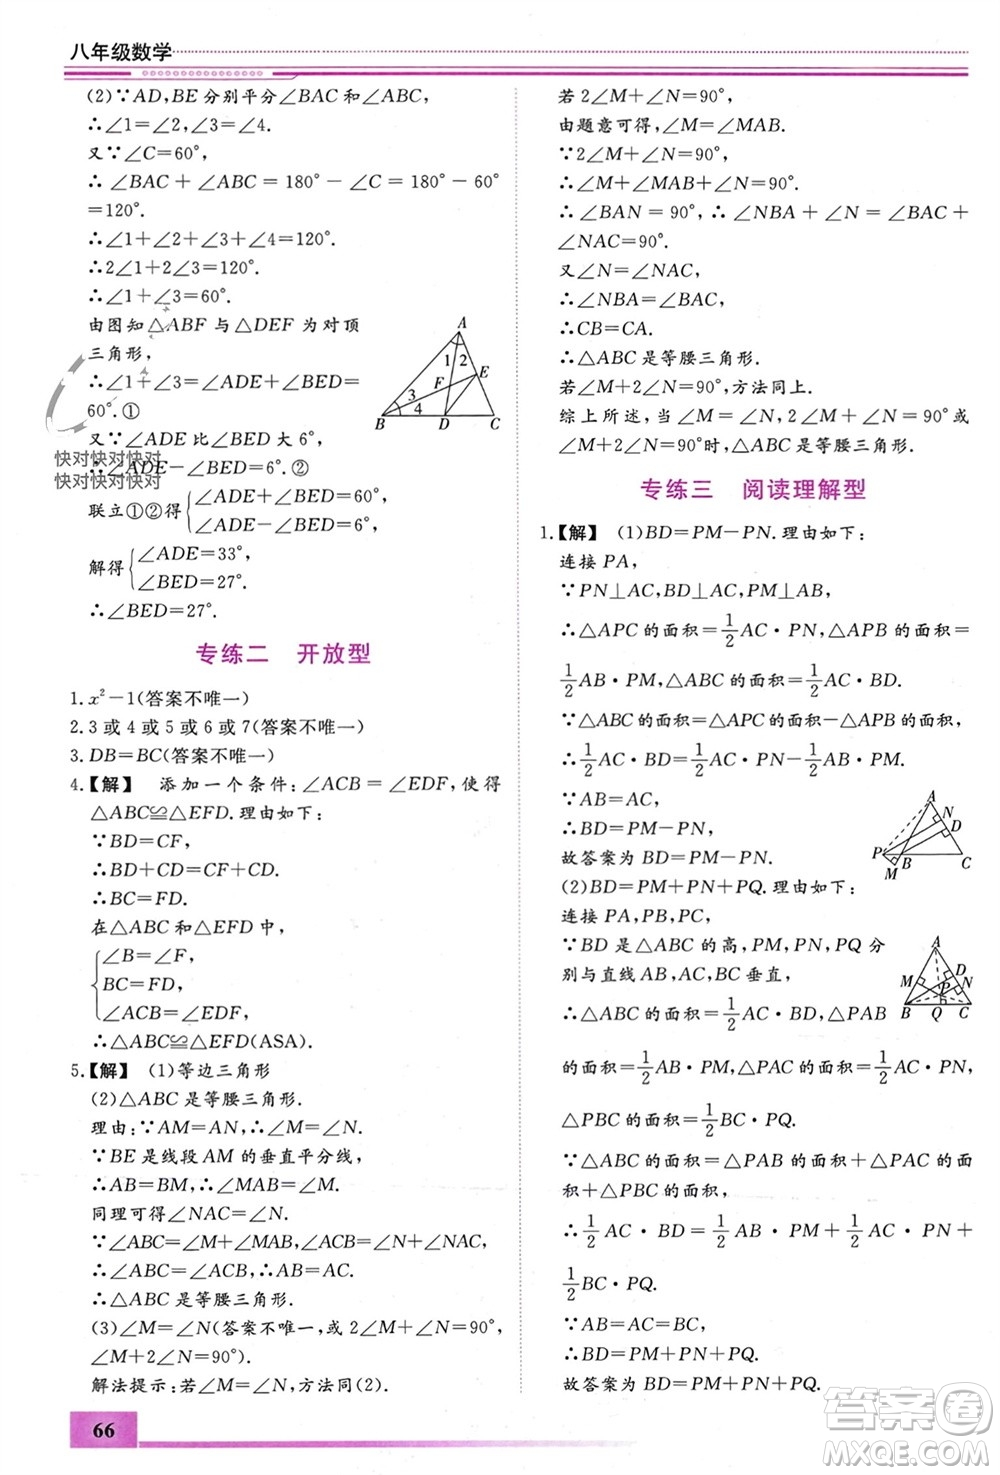 八年级数学
(2)∵AD,BE分别平分∠BAC和∠ABC,
∴∠1=∠2,∠3=∠4.
又∵∠C=60°,
∴∠BAC+∠ABC=180°-∠C=180°-60°
=120°.
∴∠1+∠2+∠3+∠4=120°.
∴2∠1+2∠3=120°.
∴∠1+∠3=60°.
由图知△ABF与△DEF为对顶
三角形,
∴∠1+∠3=∠ADE+∠BED=
60°.①
又∵∠ADE比∠BED大6°,
∴∠ADE-∠BED=6°.②
联立①②得{∠ADE+∠BED=60°,
∠ADE-∠BED=6°.
解得{∠ADE=33°,
∠BED=27°.
∴∠BED=27°.
A
1 2
F E
3
4
B D C
快对快对快对
快对快对快对
专练二 开放型
1.x²-1(答案不唯一)
2.3或4或5或6或7(答案不唯一)
3.DB=BC(答案不唯一)
4.【解】 添加一个条件:∠ACB=∠EDF,使得
△ABC≌△EFD.理由如下:
∵BD=CF,
∴BD+CD=CF+CD.
∴BC=FD.
在△ABC和△EFD中,
{∠B=∠F,
BC=FD,
∠ACB=∠EDF,
∴△ABC≌△EFD(ASA).
5.【解】 (1)等边三角形
(2)△ABC是等腰三角形.
理由:∵AM=AN,∴∠M=∠N.
∵BE是线段AM的垂直平分线,
∴AB=BM,∴∠M=∠MAB.
同理可得∠NAC=∠N.
∵∠ABC=∠M+∠MAB,∠ACB=∠N+∠NAC,
∴∠ABC=∠ACB,∴AB=AC.
∴△ABC是等腰三角形.
(3)∠M=∠N(答案不唯一,或2∠M+∠N=90°,
∠M+2∠N=90°).
解法提示:若∠M=∠N,方法同(2).
若2∠M+∠N=90°,
由题意可得,∠M=∠MAB.
∵2∠M+∠N=90°,
∴∠M+∠MAB+∠N=90°.
∴∠BAN=90°,∴∠NBA+∠N=∠BAC+
∠NAC=90°.
又∠N=∠NAC,
∴∠NBA=∠BAC.
∴CB=CA.
∴△ABC是等腰三角形.
若∠M+2∠N=90°,方法同上.
综上所述,当∠M=∠N,2∠M+∠N=90°或
∠M+2∠N=90°时,△ABC是等腰三角形.
专练三 阅读理解型
1.【解】 (1)BD=PM-PN.理由如下:
连接PA,
∵PN⊥AC,BD⊥AC,PM⊥AB,
∴△APC的面积=1/2AC·PN,△APB的面积=
1/2AB·PM,△ABC的面积=1/2AC·BD.
∵△ABC的面积=△APC的面积-△APB的面积,
∴1/2AC·BD=1/2AB·PM-1/2AC·PN,
∵AB=AC,
∴BD=PM-PN,
故答案为BD=PM-PN.
A
N
D
P
M B C
(2)BD=PM+PN+PQ.理由如下:
连接PA,PB,PC,
∵BD是△ABC的高,PM,PN,PQ分
别与直线AB,AC,BC垂直,
∴△ABC的面积=1/2AC·BD,△PAB
的面积=1/2AB·PM,△PAC的面积=1/2AC·PN,
△PBC的面积=1/2BC·PQ.
∵△ABC的面积=△PAB的面积+△PAC的面
积+△PBC的面积,
∴1/2AC·BD=1/2AB·PM+1/2AC·PN+
1/2BC·PQ.
∵AB=AC=BC,
∴BD=PM+PN+PQ,
故答案为BD=PM+PN+PQ.
A
D
M P N
B Q C
66
答案圈
MXQE.COM